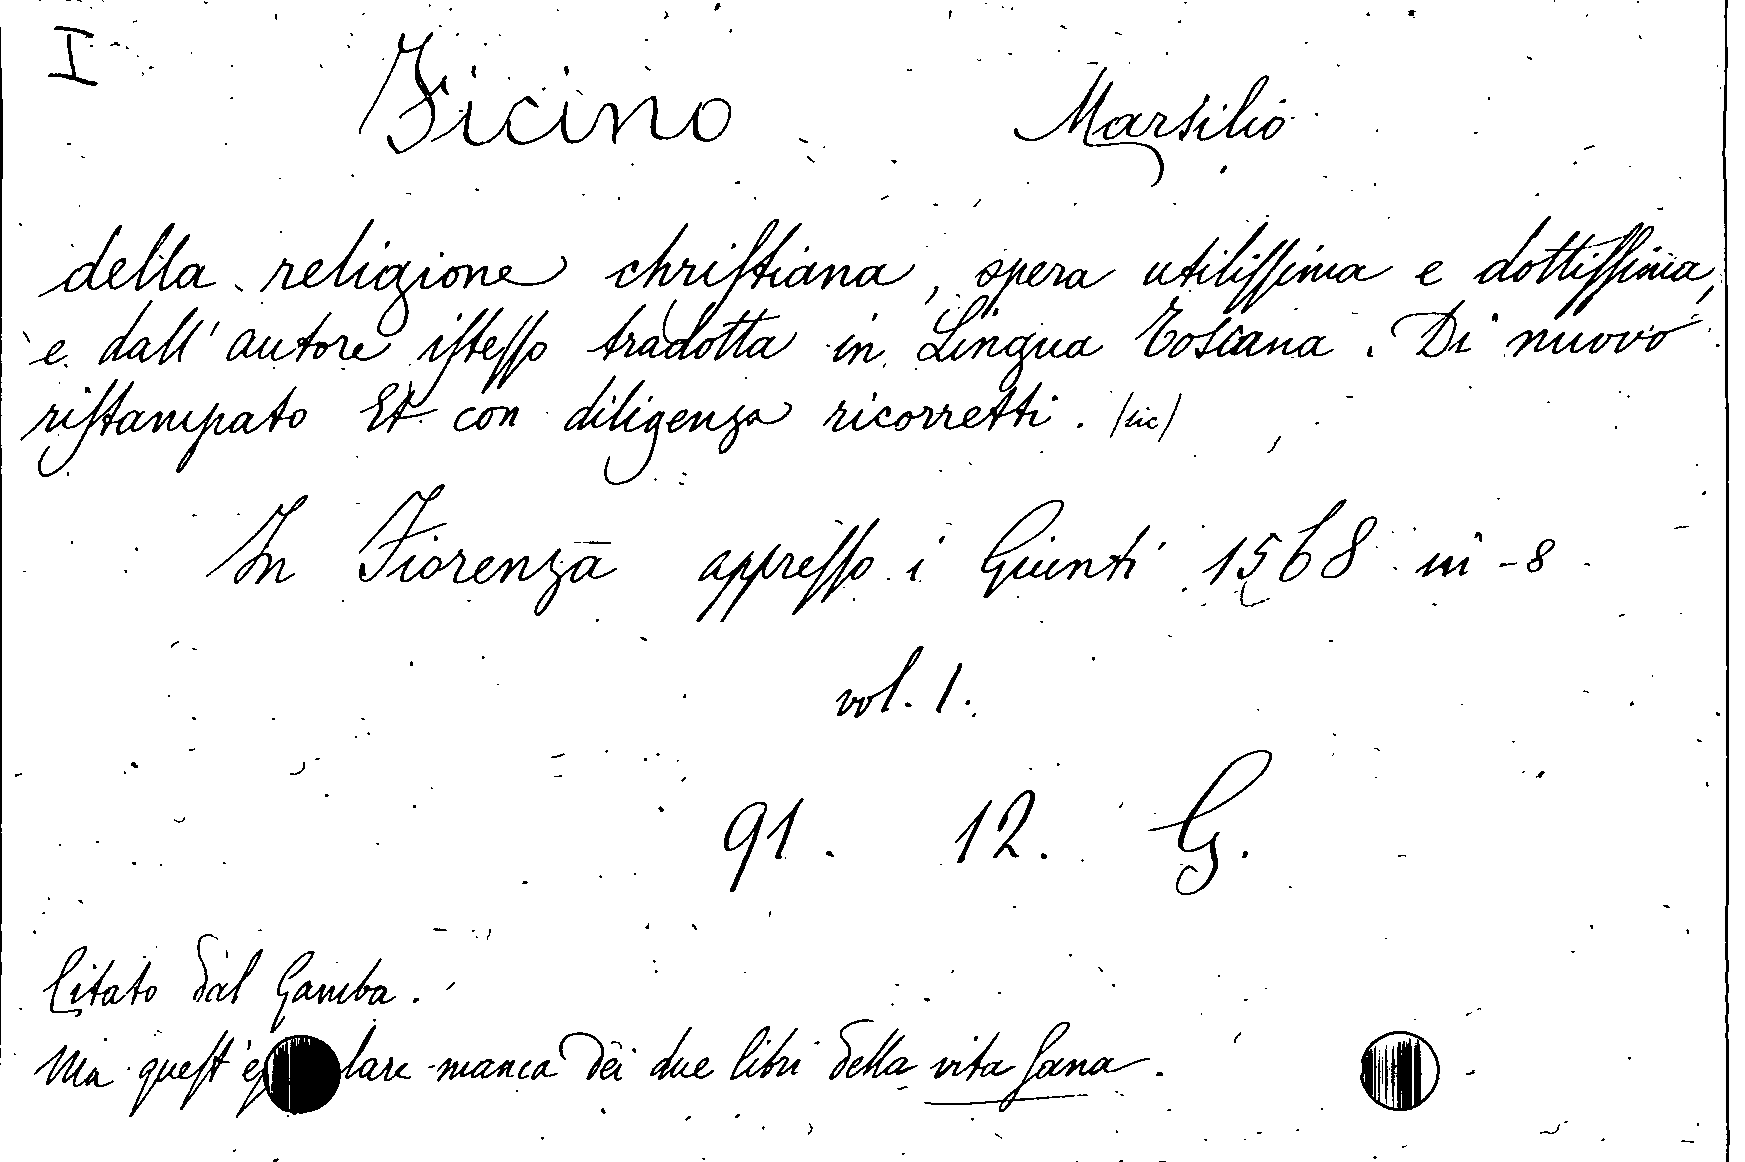 I
Ficino Marsilio
della religione christiana, opera utilissima e dottissima,
e dall'autore istesso tradotta in Lingua Toscana. Di nuovo
ristampato Et con diligenza ricorretti. (sic)
In Fiorenza appresso i Giunti 1568 in-8
vol. 1.
91. 12. G.
Citato dal Gamba.
Ma quest' lare manca dei due libri della vita sana.